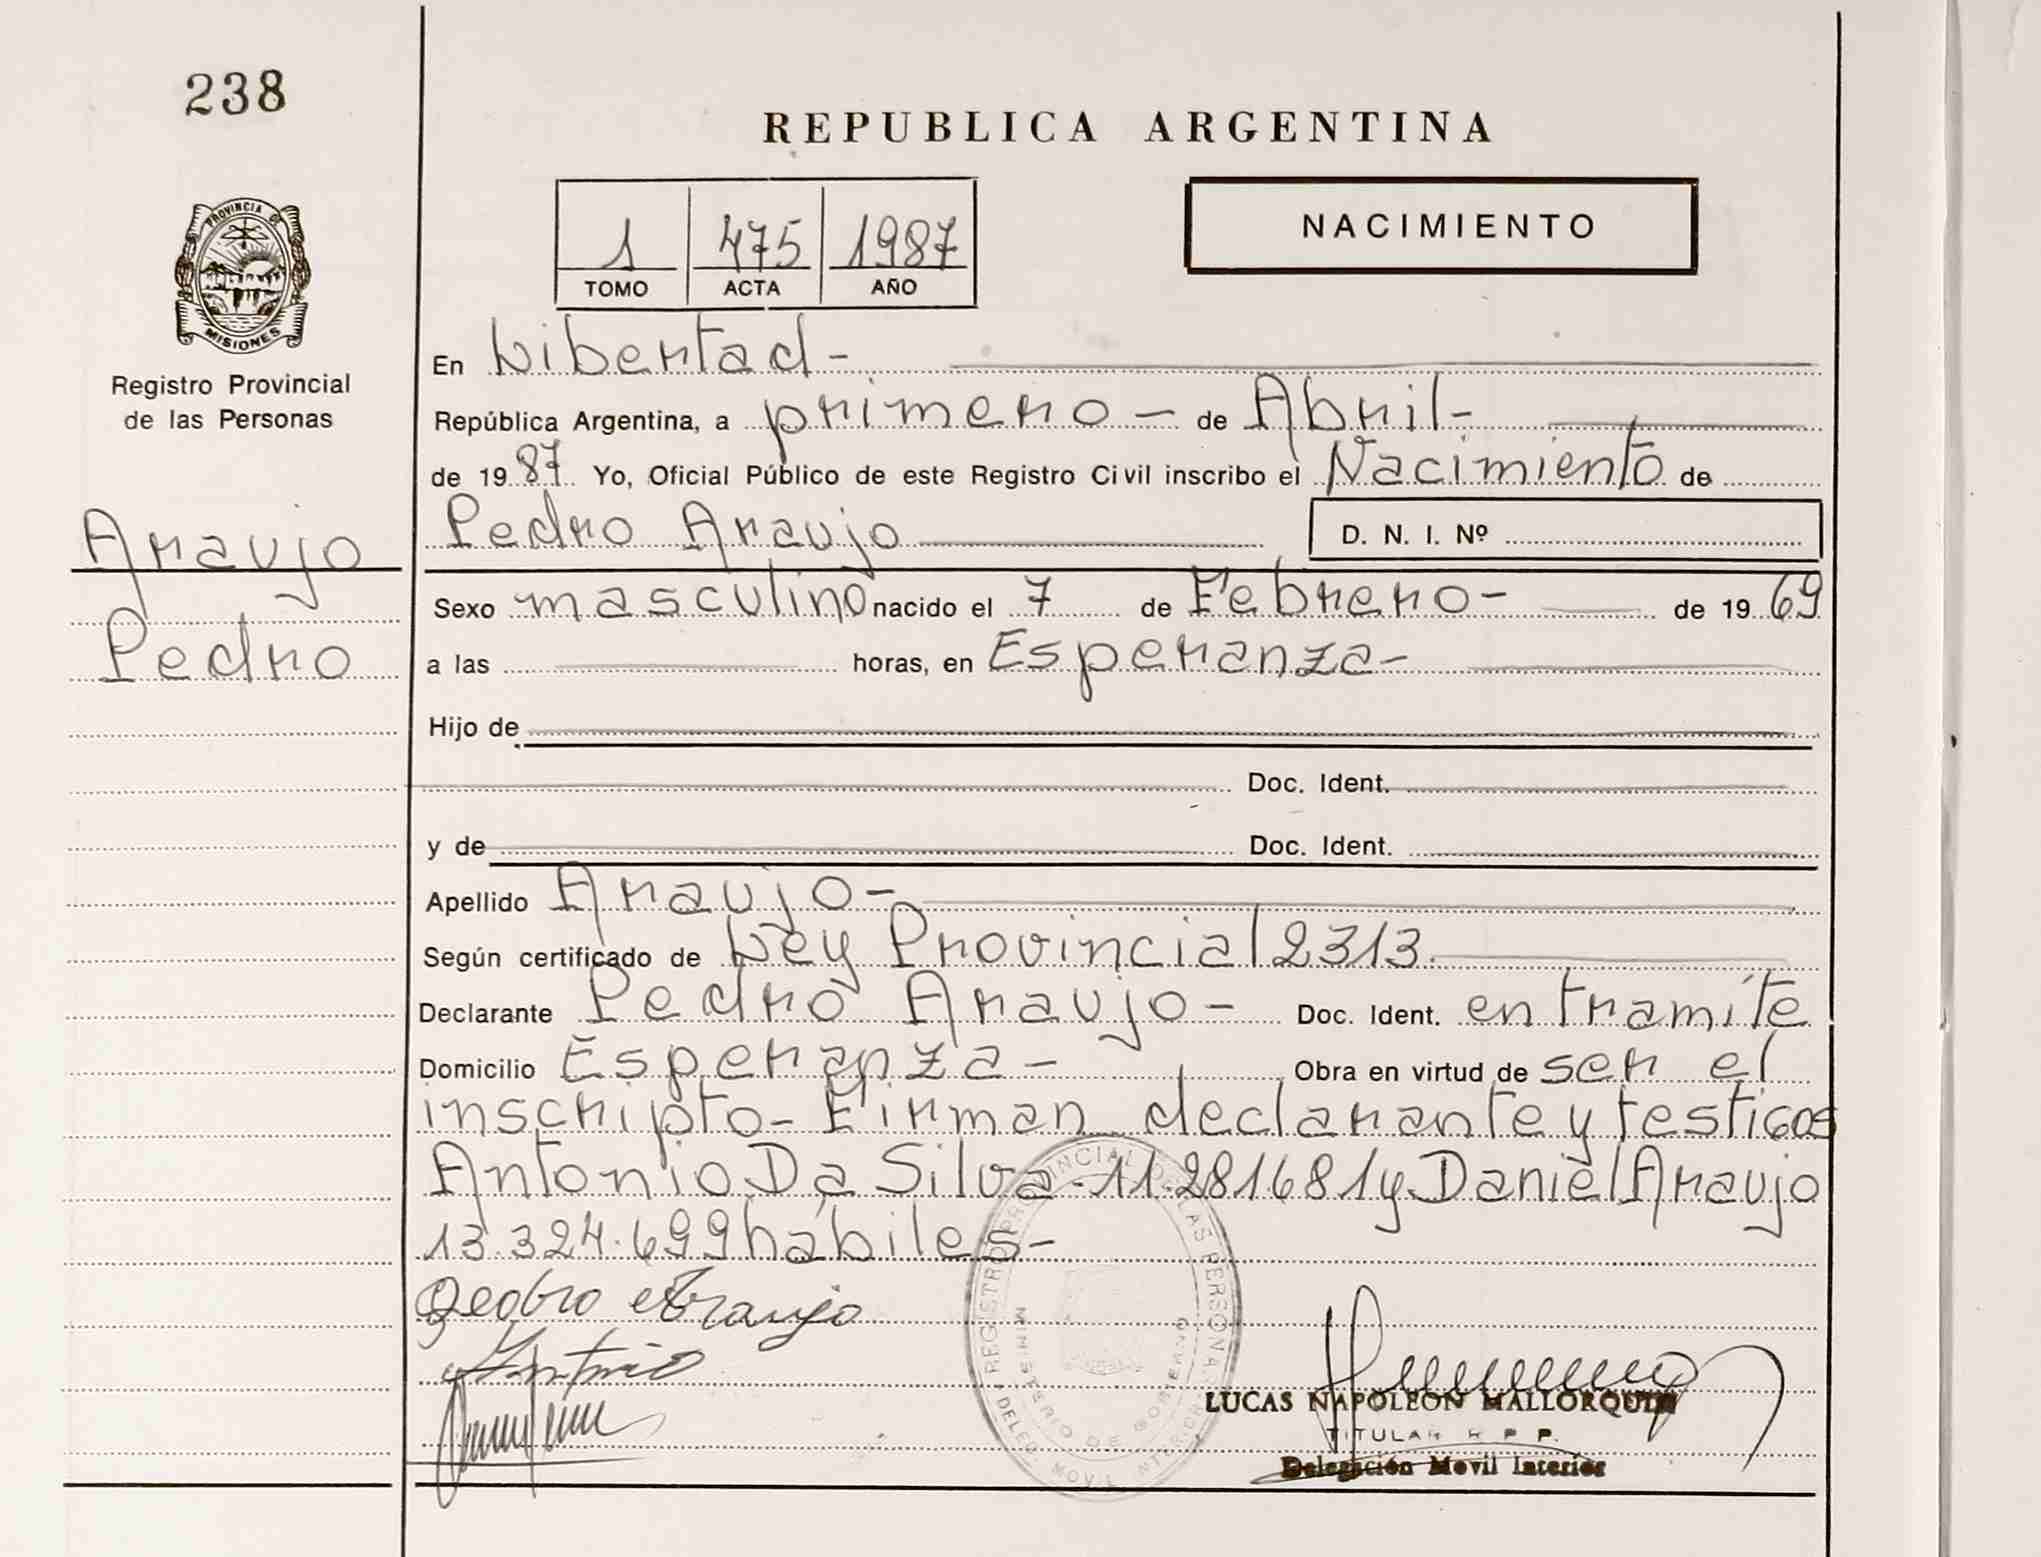 238
REPUBLICA ARGENTINA
PROVINCIA DE
MISIONES
Registro Provincial
de las Personas
1 475 1987
TOMO ACTA AÑO
NACIMIENTO
En Libertad-
República Argentina, a primero- de Abril-
de 1987 Yo, Oficial Público de este Registro Civil inscribo el Nacimiento de
Araujo
Pedro
Pedro Araujo D. N. I. Nº
Sexo masculino nacido el 7 de Febrero- de 1969
a las horas, en Esperanza-
Hijo de
Doc. Ident.
y de Doc. Ident.
Apellido Araujo-
Según certificado de Ley Provincial 2313.
Declarante Pedro Araujo- Doc. Ident. en tramíte
Domicilio Esperanza- Obra en virtud de ser el
inscripto- Firman declarante y testigos
Antonio Da Silva-11.281681 y Daniel Araujo
13.324.699 hábiles-
Pedro Araujo
Antonio
REGISTRO PROVINCIAL DE LAS PERSONAS
MINISTERIO DE GOBIERNO
DELEG. MOVIL INTERIOR
LUCAS NAPOLEON MALLORQUIN
TITULAR R P P.
Delegación Movil Interior